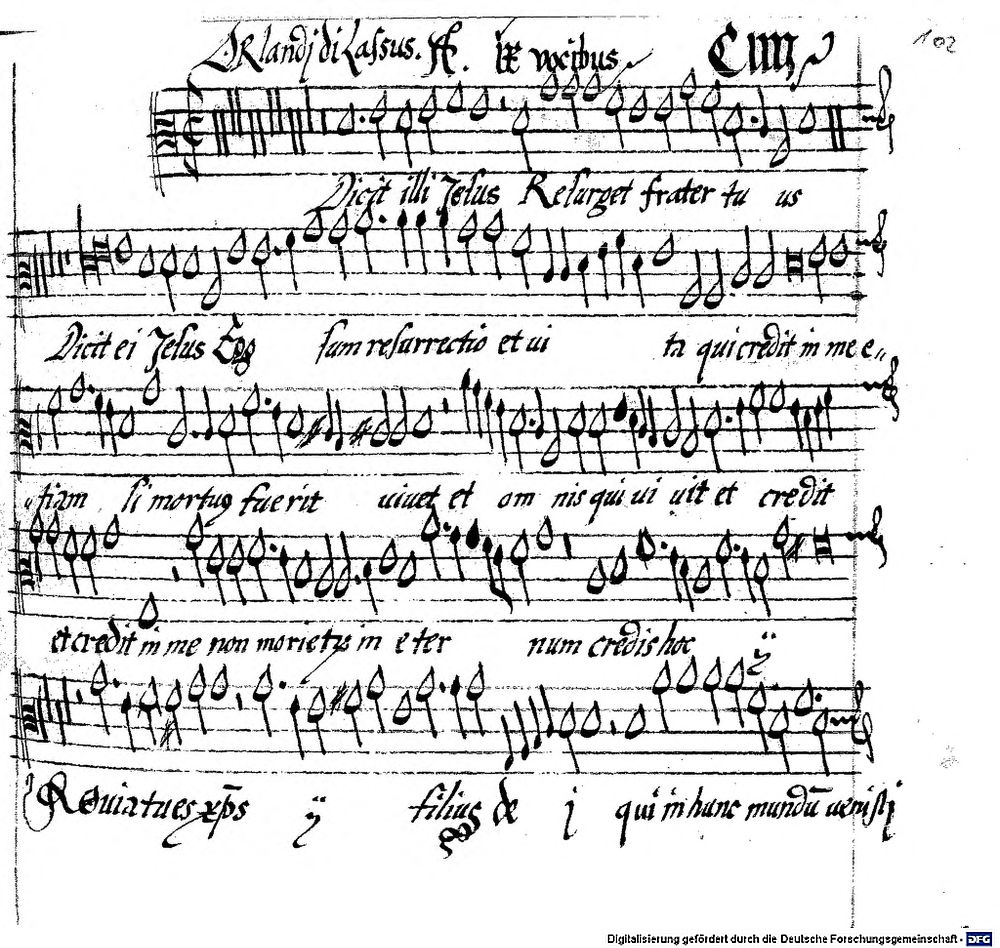 Orlandj di Lassus. ix vocibus
102
Dicit illi Jesus Resurget frater tu us
Dicit ei Jesus Ego sum resurrectio et vi ta qui credit in me e
tiam si mortuus fuerit vivet et om nis qui vi vit et credit
et credit in me non morietur in e ter num credis hoc ij
quia tu es xp̄s ij filius de j qui in hunc mundū venistj
Digitalisierung gefördert durch die Deutsche Forschungsgemeinschaft - DFG